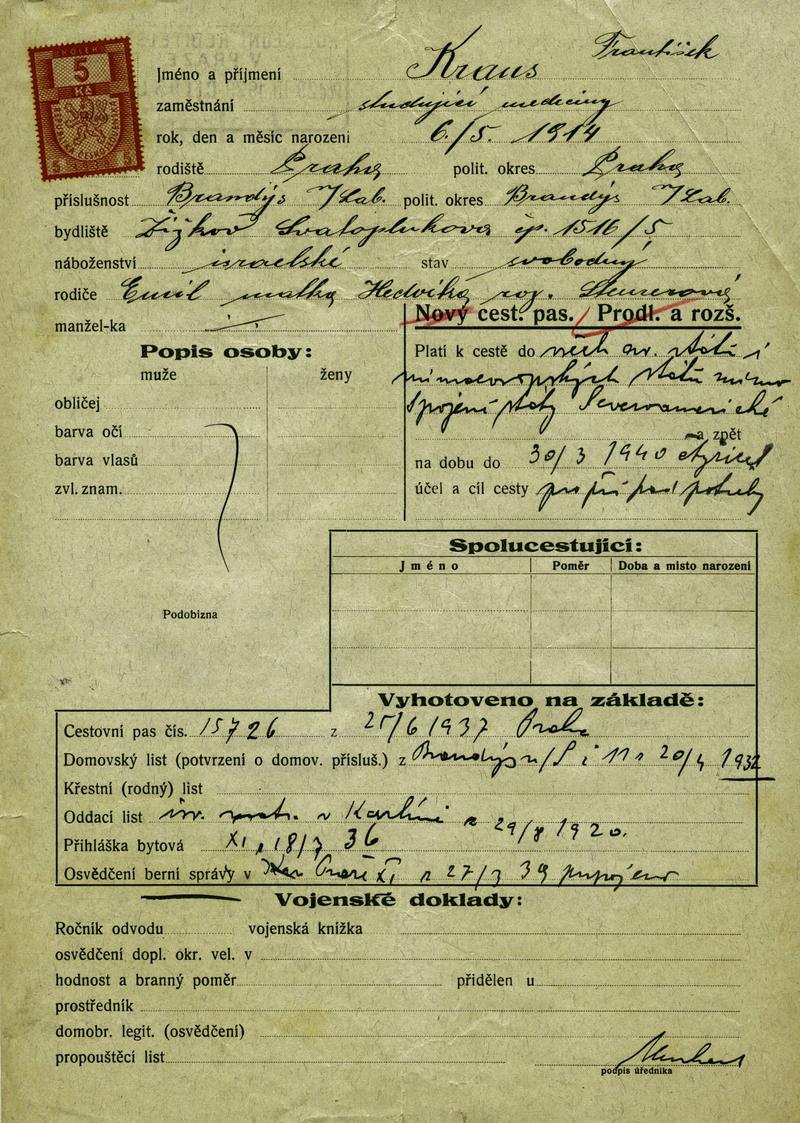 5
Kč
5 5
Jméno a příjmení Kraus František
zaměstnání studující mediciny
rok, den a měsíc narozeni 6./5. 1914
rodiště Praha polit. okres Praha
příslušnost Brandýs n/Lab. polit. okres Brandýs n/Lab.
bydliště Žižkov Svatoplukova čp. 1516/5
náboženství israelské stav svobodný
rodiče Emil matka Hedvika roz. Steinerová
manžel-ka
Nový cest. pas. / Prodl. a rozš.
Popis osoby:
muže ženy
obličej
barva očí
barva vlasů
zvl. znam.
Platí k cestě do všech ev. států i
mimoevropských států mimo
Spojené státy Severoamerické
a zpět
na dobu do 30/3 1940
účel a cíl cesty
Podobizna
Spolucestující:
Jméno Poměr Doba a místo narození
Vyhotoveno na základě:
Cestovní pas čís. 15726 z 25/6 1937 Praha
Domovský list (potvrzení o domov. přísluš.) z Brandýs n/L 20/4 1932
Křestní (rodný) list
Oddací list v Karlíně 29/8 1920.
Přihláška bytová XI, 18/3 36
Osvědčení berní správy v XI 27/3 39
Vojenské doklady:
Ročník odvodu vojenská knížka
osvědčení dopl. okr. vel. v
hodnost a branný poměr přidělen u
prostředník
domobr. legit. (osvědčení)
propouštěcí list
podpis úředníka